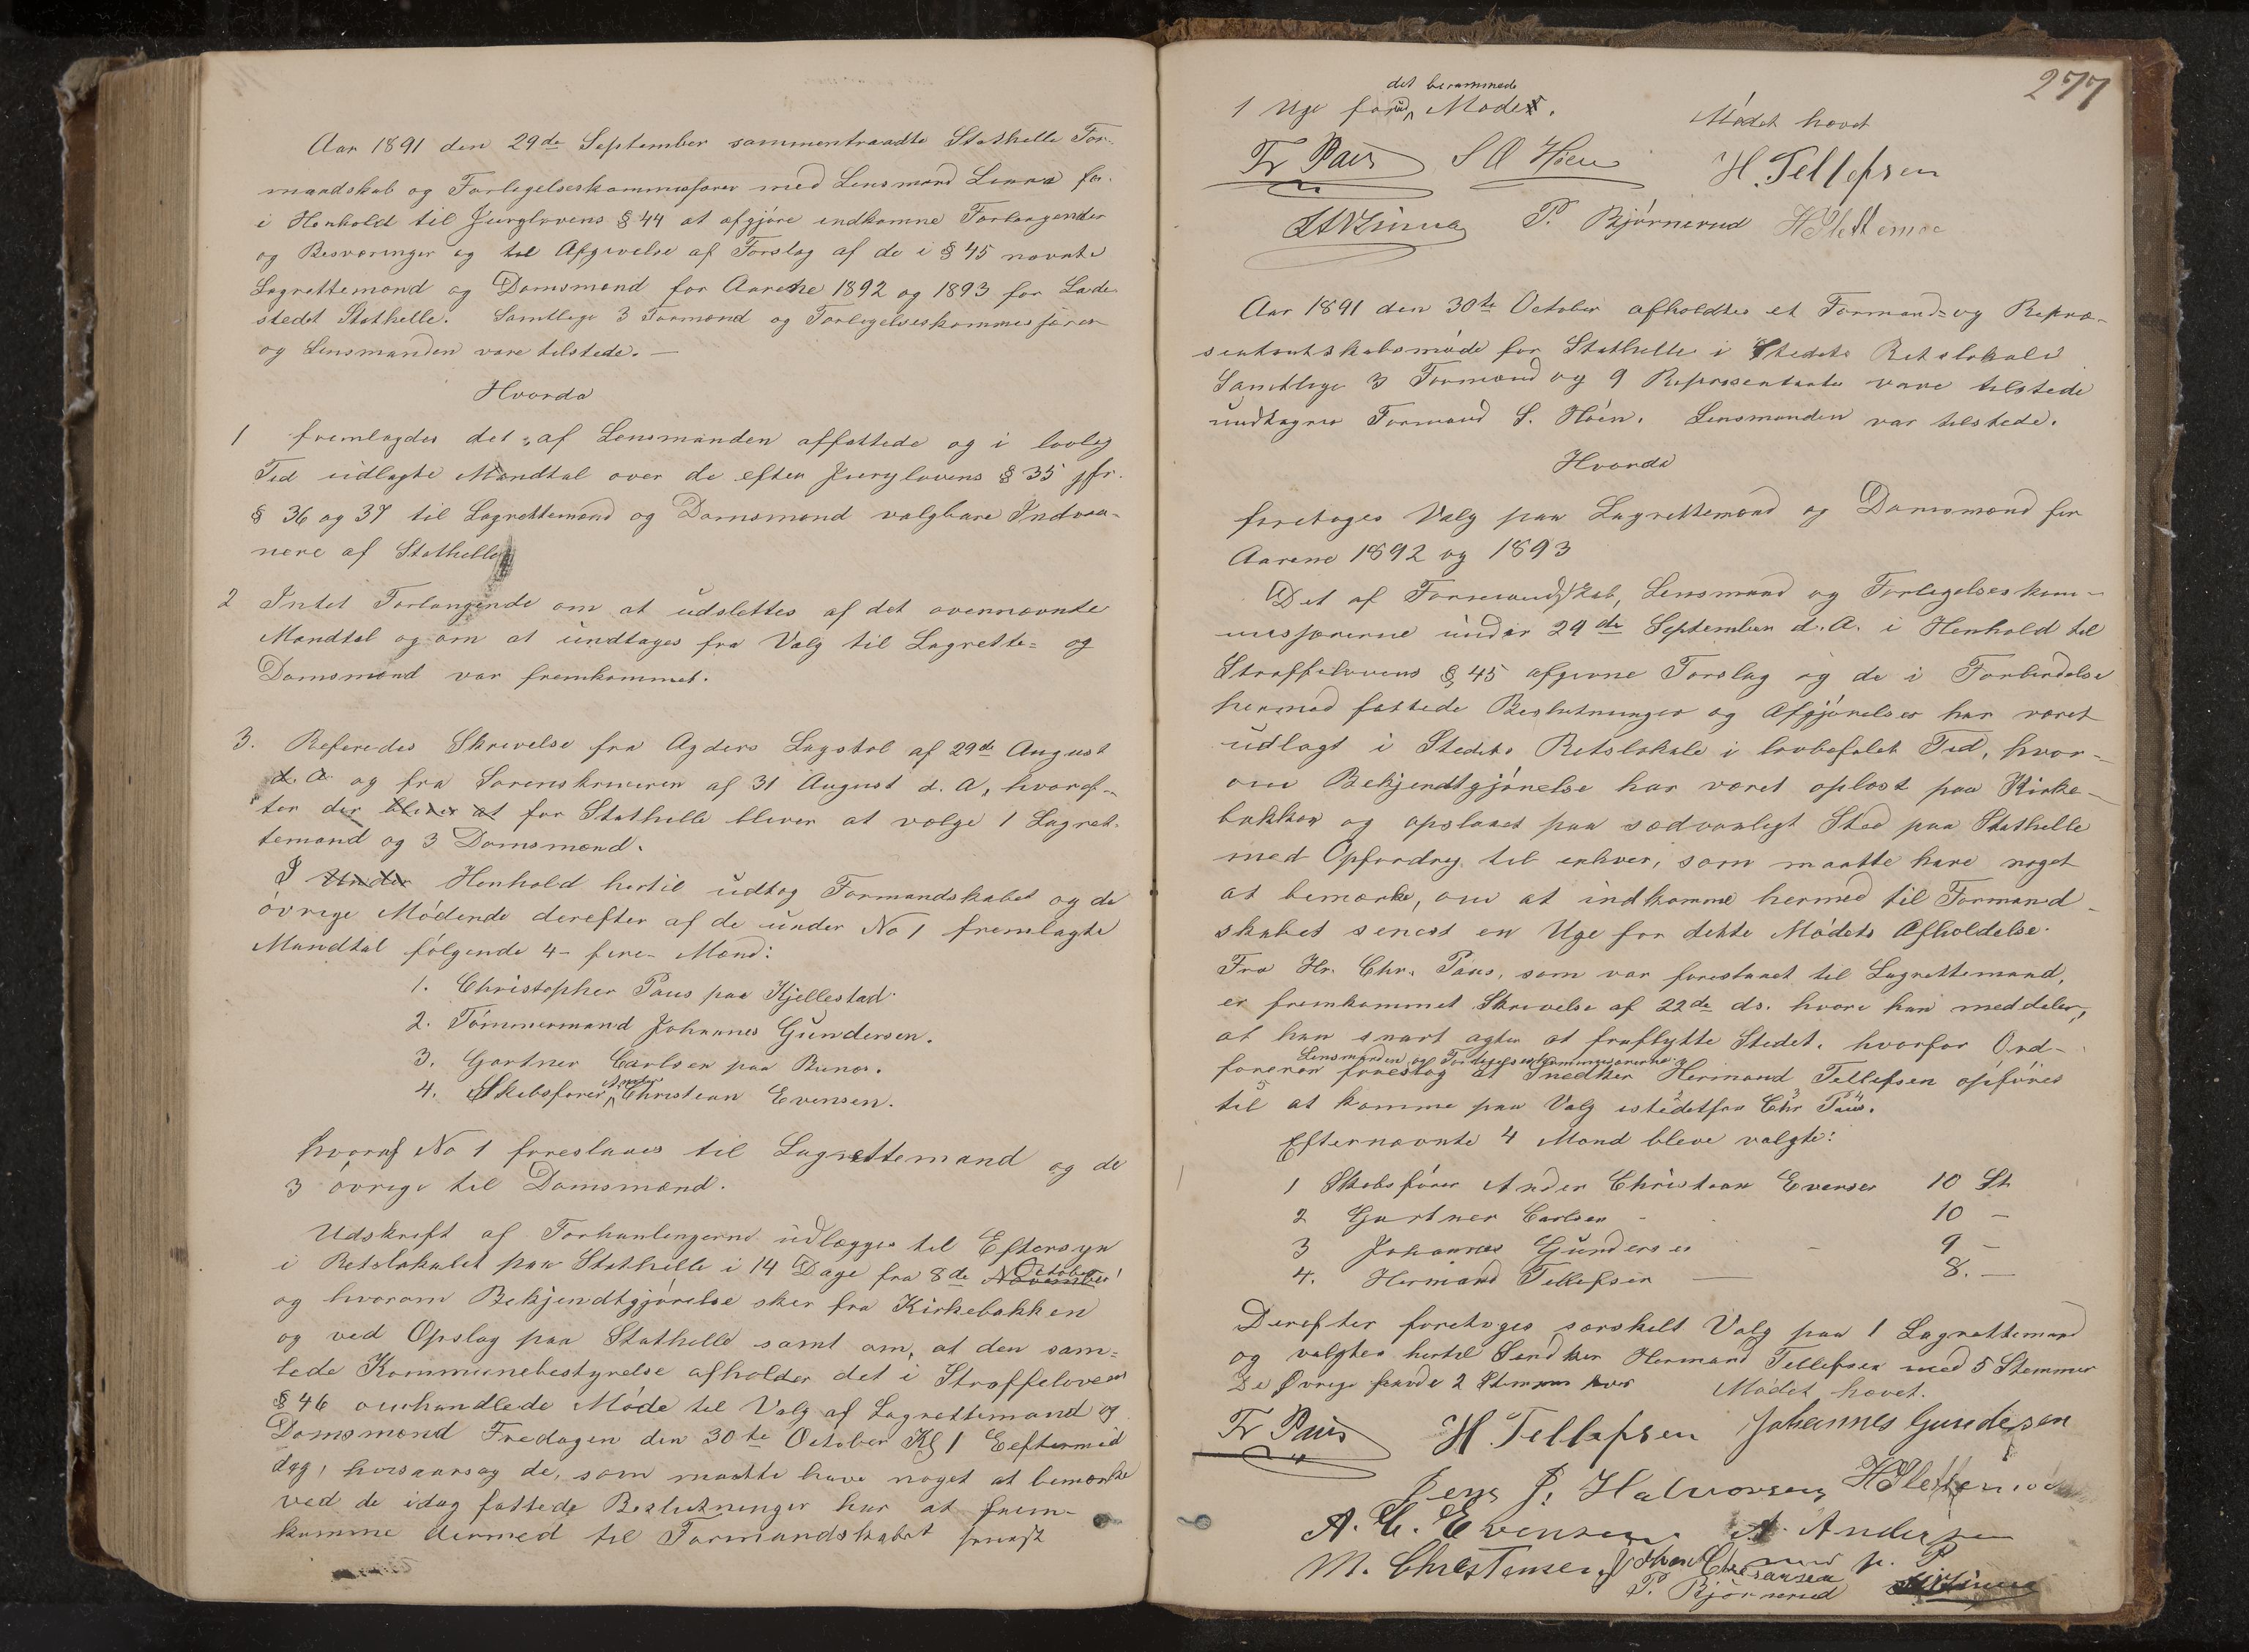 Aar 1891 den 29de September sammentraadte Stathelle For-
mandskab og Forligelseskommissærer med Lensmand Linna for
i Henhold til Jurylovens § 44 at afgjøre indkomne Forlangender
og Besværinger og til Afgivelse af Forslag af de i § 45 nævnte
Lagrettemænd og Domsmænd for Aarene 1892 og 1893 for Lade-
stedet Stathelle. Samtlige 3 Formænd og Forligelseskommissærer
og Lensmanden vare tilstede. —
Hvorda
1 fremlagdes det af Lensmanden affattede og i lovlig
Tid udlagte Mandtal over de efter Jurylovens § 35 jfr.
§ 36 og 37 til Lagrettemænd og Domsmænd valgbare Indvaa-
nere af Stathelle
2 Intet Forlangende om at udslettes af det ovennævnte
Mandtal og om at undtages fra Valg til Lagrette- og
Domsmænd var fremkommet.
3. Referedes Skrivelse fra Agders Lagstol af 29de August
d. A og fra Sorenskriveren af 31 August d. A, hvoref-
ter der bliver at for Stathelle bliver at vælge 1 Lagret-
temand og 3 Domsmænd.
I Under Henhold hertil udtog Formandskabet og de
øvrige Mødende derefter af de under No 1 fremlagte
Mandtal følgende 4- fire- Mænd:
1. Christopher Paus paa Kjellestad.
2. Tømmermand Johannes Gundersen.
3. Gartner Carlsen paa Runar.
4. Skibsfører Anders Christian Evensen.
hvoraf No 1 foreslaaes til Lagrettemand og de
3 øvrige til Domsmænd.
Udskrift af Forhanlingerne udlægges til Eftersyn
i Retslokalet paa Stathelle i 14 Dage fra 8de November October
og hvorom Bekjendtgjørelse sker fra Kirkebakken
og ved Opslag paa Stathelle samt om, at den sam-
lede Kommunebestyrelse afholder det i Straffeloven
§ 46 omhandlede Møde til Valg af Lagrettemænd og
Domsmænd Fredagen den 30te October Kl 1 Eeftermid
dag, de, som maatte have noget at bemærke
ved de idag fattede Beslutninger har at frem-
komme dermed til Formandskabet senest
277
det berammede
1 Uge forud Møde. Mødet hævet
Fr Paus S O Høen H. Tellefsen
P. Bjørnerud H Slettemoe
Aar 1891 den 30te October afholdtes et Formand- og Repræ-
sentantskabsmøde for Stathelle i Stedets Retslokale
Samtlige 3 Formænd og 9 Repræsentanter vare tilstede
undtagen Formand S. Høen. Lensmanden var tilstede.
Hvorda
foretoges Valg paa Lagrettemænd og Domsmænd for
Aarene 1892 og 1893
Det af Formandskab, Lensmand og Forligelseskom-
missærerne under 29de September d. A. i Henhold til
Straffelovens § 45 afgivne Forslag og de i Forbindelse
hermed fattede Beslutninger og Afgjørelser har været
udlagt i Stedets Retslokale i lovbefalet Tid, hvor-
om Bekjendtgjørelse har været oplæst paa Kirke-
bakken og opslaaet paa sædvanligt Sted paa Stathelle
med Opfordrg. til enhver, som maatte have noget
at bemærke, om at indkomme hermed til Formand-
skabet senest en Uge før dette Mødets Afholdelse.
Fra Hr. Chr. Paus, som var foreslaaet til Lagrettemand,
er fremkommet Skrivelse af 22de ds. hvori han meddeler,
at han snart agter at fraflytte Stedet, hvorfor Ord-
Lensmanden og Forligelseskommissærerne
føreren foreslog at Snedker Hermand Tellefsen opføres
til at komme paa Valg istedetfor Chr Paus.
Efternævnte 4 Mænd bleve valgte:
1 Skibsfører Anders Christian Evensen 10 St
2 Gartner Carlsen - 10 —
3 Johannes Gundersen - 9 —
4. Hermand Tellefsen — 8. —
Derefter foretoges særskilt Valg paa 1 Lagrettemand
og valgtes hertil Snedker Hermand Tellefsen med 5 Stemmer
De Øvrige havde 2 Stemmer hver Mødet hævet.
Fr Paus H. Tellefsen Johannes Gundesen
Jens J. Halvorsen H Slettemoe
A. C. Evensen A. Andersen
M. Christensen
P. Bjørnerud